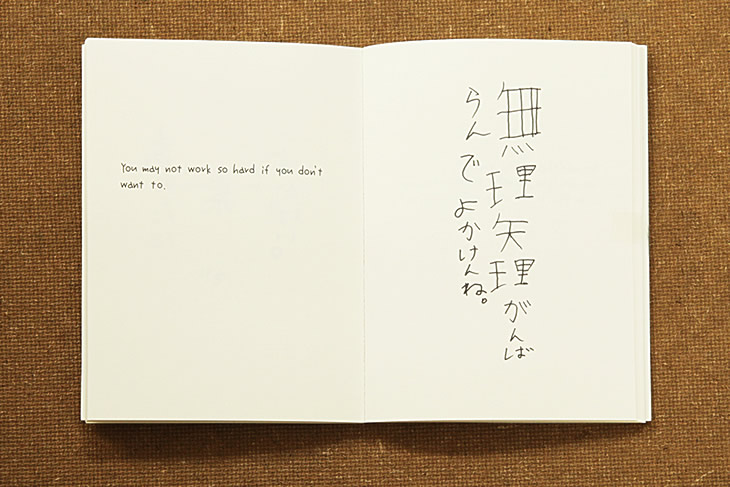 You may not work so hard if you don't
want to.
無理矢理がんば
らんでよかけんね。